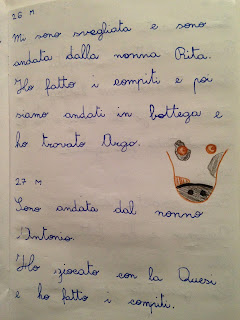 26 M
Mi sono svegliata e sono
andata dalla nonna Rita.
Ho fatto i compiti e poi
siamo andati in bottega e
ho trovato Argo.
27 M
Sono andata dal nonno
Antonio.
Ho giocato con la Quesi
e ho fatto i compiti.